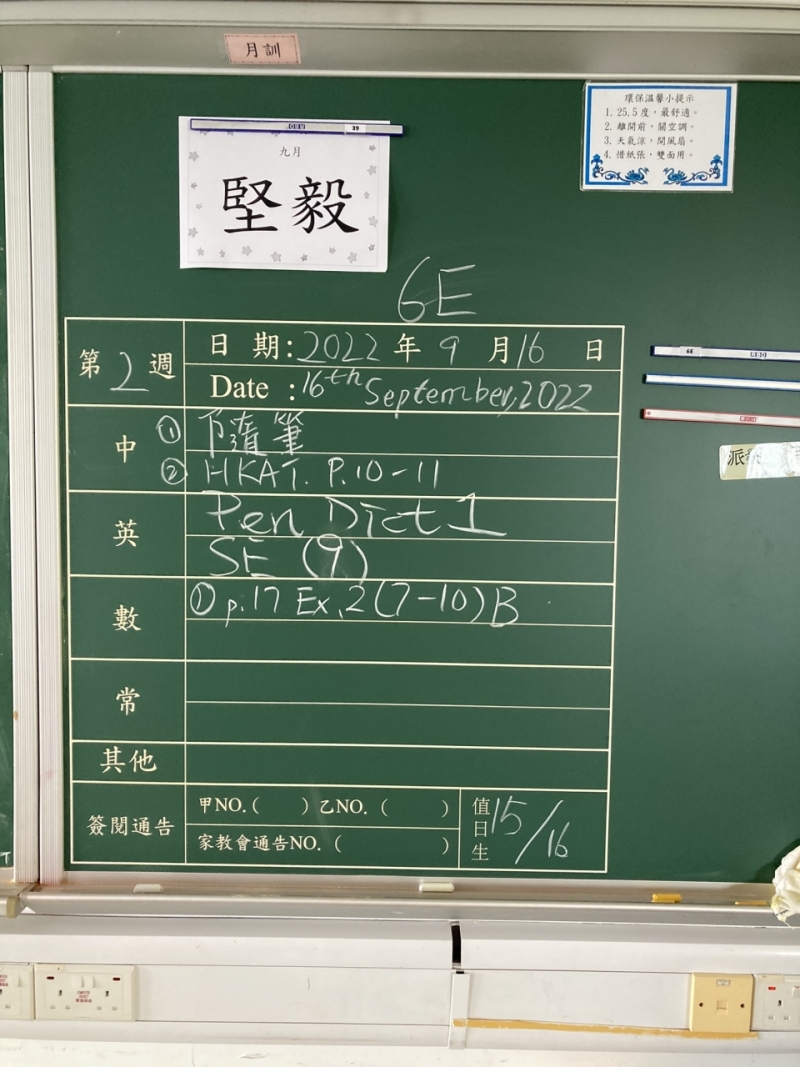 月訓
九月
堅毅
環保溫馨小提示
1. 25.5度，最舒適。
2. 離開前，關空調。
3. 天氣涼，開風扇。
4. 惜紙張，雙面用。
6E
第2週
日期：2022年9月16日
Date : 16th September, 2022
中
① 隨筆
② HKAT. P.10-11
英
Pen Dict 1
SE (9)
數
① p.17 Ex.2(7-10)B
常
其他
簽閱通告
甲NO.( )乙NO.( )
家教會通告NO.( )
值日生 15/16
6E
派